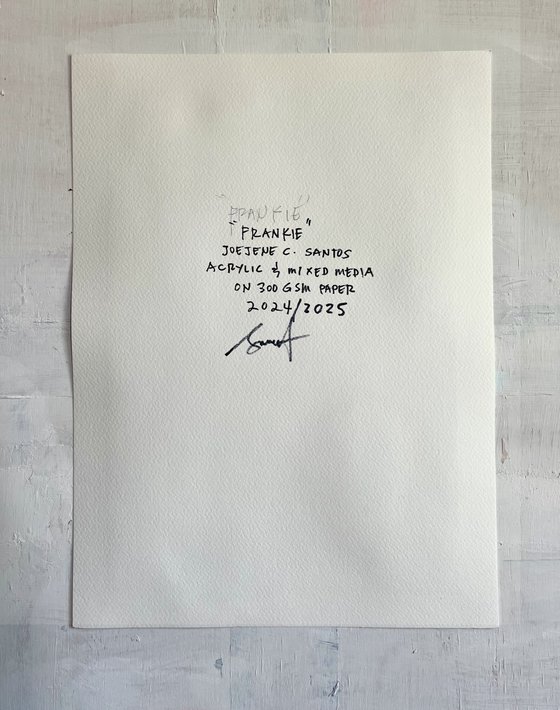 "FRANKIE"
"FRANKIE"
JOEJENE C. SANTOS
ACRYLIC & MIXED MEDIA
ON 300 GSM PAPER
2024/2025